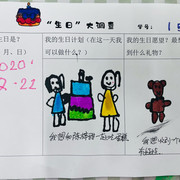 “生日”大调查
学号：15
生日是？
月、日）
我的生日计划（在这一天我
可以做什么？）
我的生日愿望？最
什么礼物？
2020'
2-21
我想和陈
一起吃蛋糕
我想收到一个